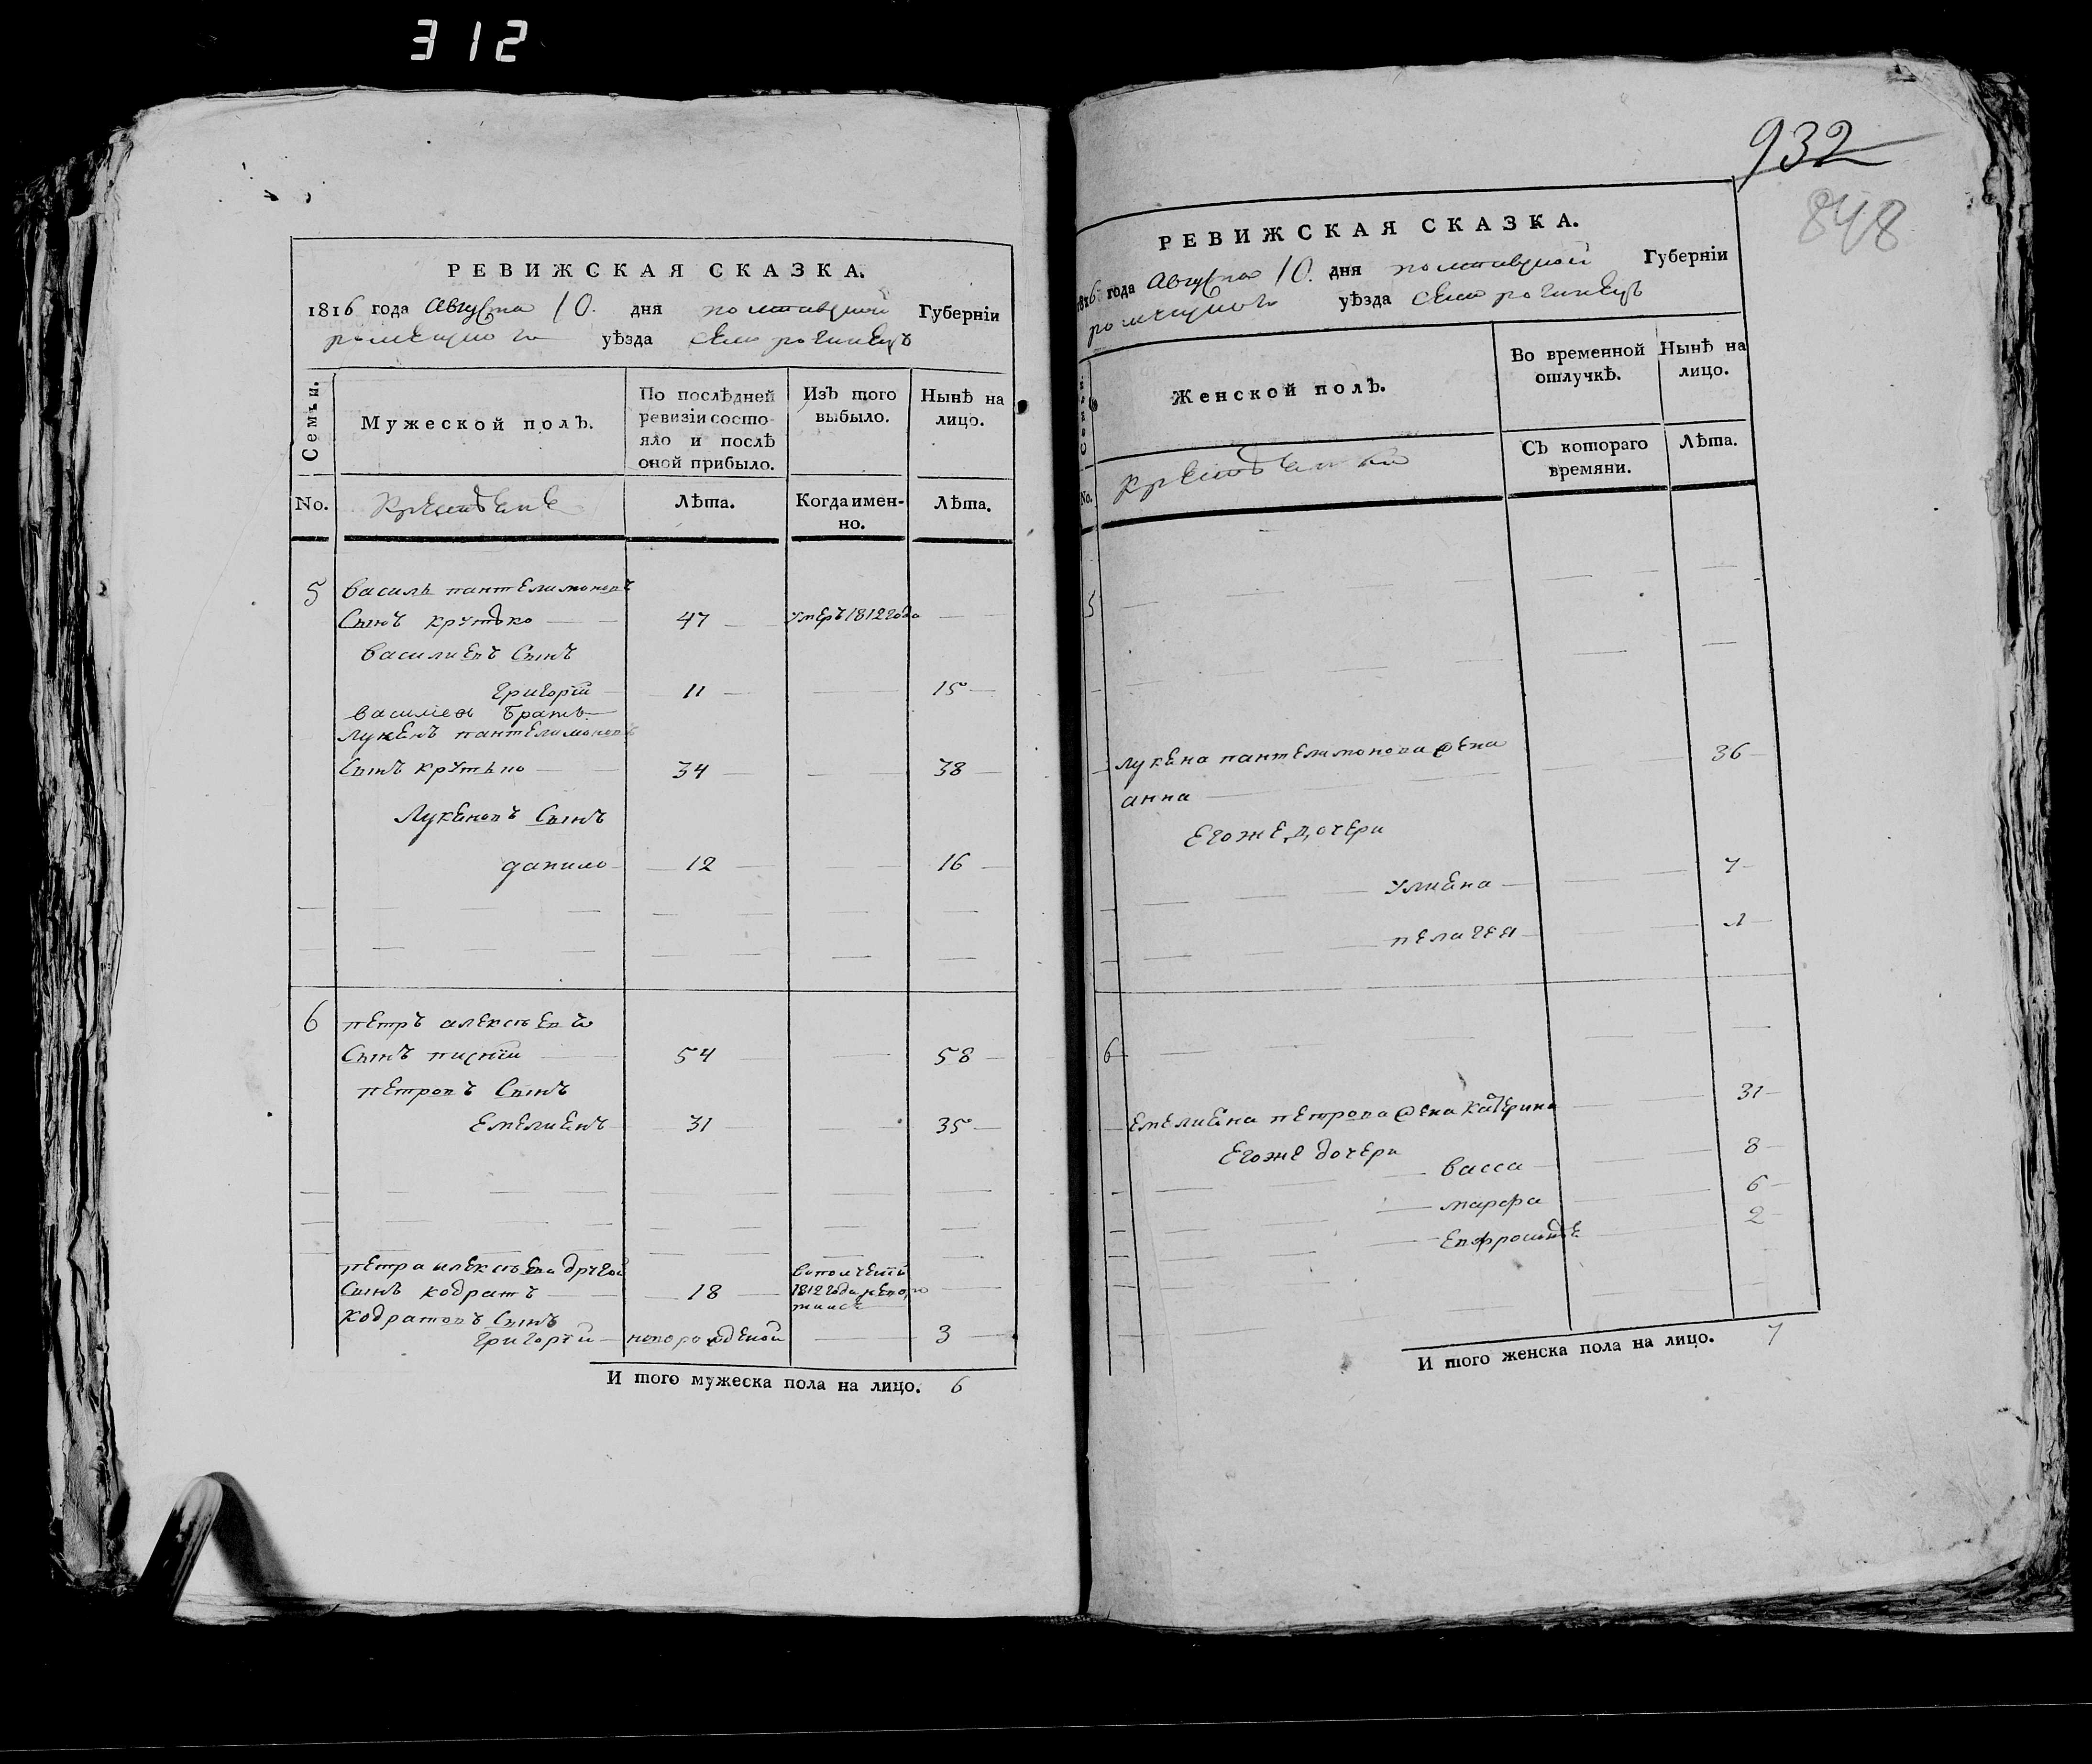 312
РЕВИЖСКАЯ СКАЗКА.
1816 года Августа 10. дня полтавской Губернїи
роменского уѣзда село рогинецъ
Семьи.
Мужеской полъ.
По послѣдней ревизїи состояло и послѣ оной прибыло.
Изъ того выбыло.
Нынѣ на лицо.
No.
Крестьяне
Лѣта.
Когда имен-
но.
Лѣта.
5 василь пантелимоновъ
Сынъ крутько 47 умеръ 1812 года
василиевъ Сынъ
григорїй 11 15
василиевъ братъ
Лукянъ пантелимоновъ
Сынъ крутько 34 38
Лукяновъ Сынъ
данило 12 16
6 петръ алексѣевъ
Сынъ 54 58
петровъ Сынъ
Емелиянъ 31 35
петра алексѣева другой
Сынъ кодратъ 18 1812 года
кодратовъ Сынъ
григорїй новорожденой 3
И того мужеска пола на лицо. 6
932
848
РЕВИЖСКАЯ СКАЗКА.
1816 года Августа 10. дня полтавской Губернїи
роменского уѣзда село рогинецъ
Семьи.
Женской полъ.
Во временной
отлучкѣ.
Нынѣ на
лицо.
No.
Крестьянки
Съ котораго
времяни.
Лѣта.
5
Лукяна пантелимонова жена 36
анна
Егоже дочери
улияна 7
пелагея 1
6
Емелияна петрова жена катерина 31
Егоже дочери
васса 8
марфа 6
Евфросинія 2
И того женска пола на лицо. 7